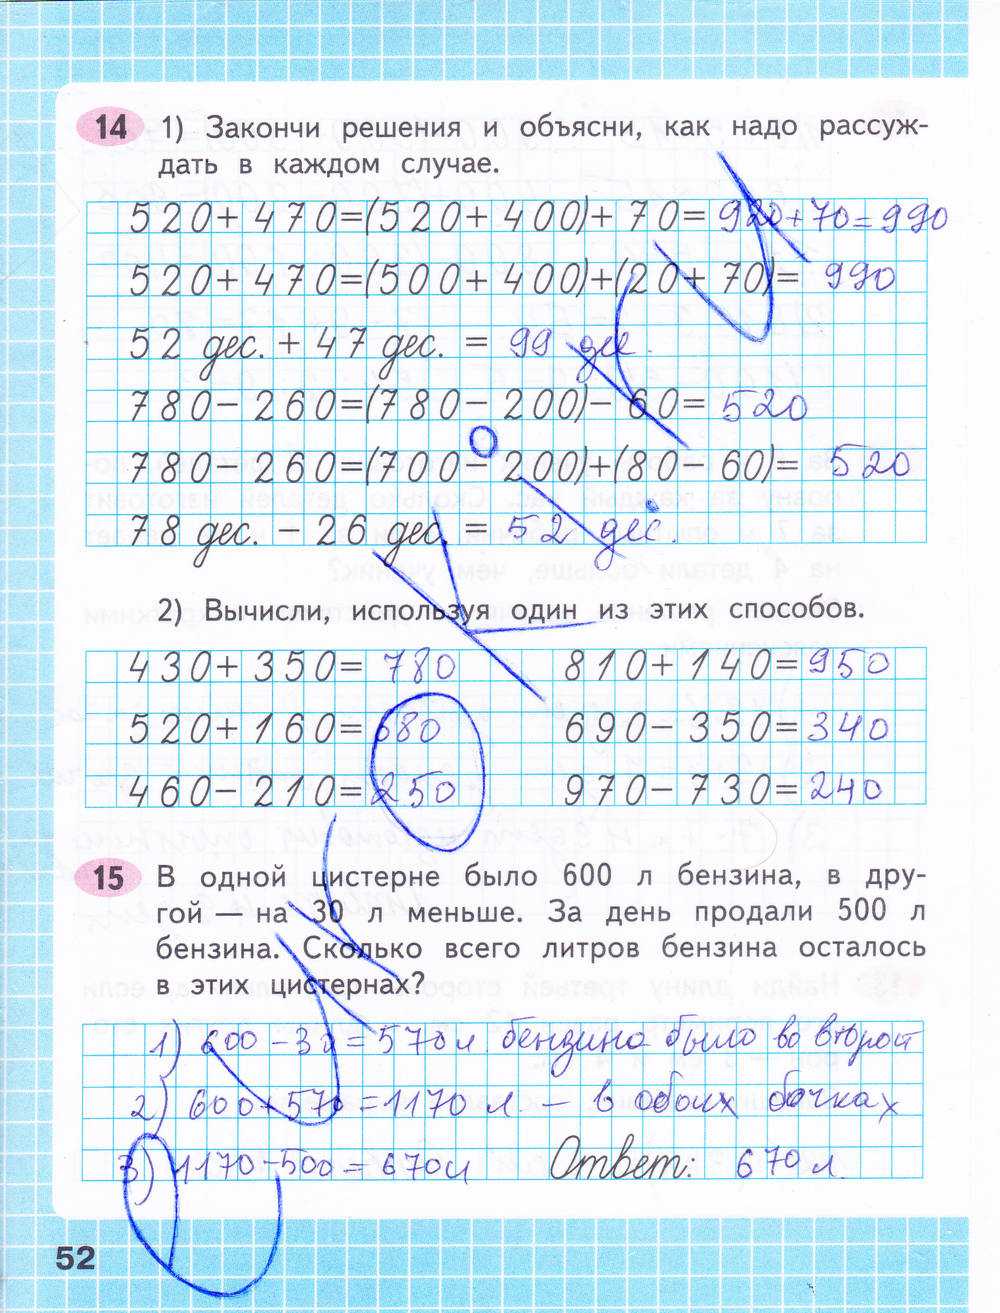 14 1) Закончи решения и объясни, как надо рассуж-
дать в каждом случае.
520+470=(520+400)+70=920+70=990
520+470=(500+400)+(20+70)=990
52 дес. + 47 дес. = 99 дес.
780-260=(780-200)-60=520
780-260=(700-200)+(80-60)=520
78 дес. - 26 дес. = 52 дес.
2) Вычисли, используя один из этих способов.
430+350=780 810+140=950
520+160=680 690-350=340
460-210=250 970-730=240
15 В одной цистерне было 600 л бензина, в дру-
гой — на 30 л меньше. За день продали 500 л
бензина. Сколько всего литров бензина осталось
в этих цистернах?
1) 600-30=570 л бензина было во второй
2) 600+570=1170 л — в обоих бочках
3) 1170-500=670 л Ответ: 670 л
52